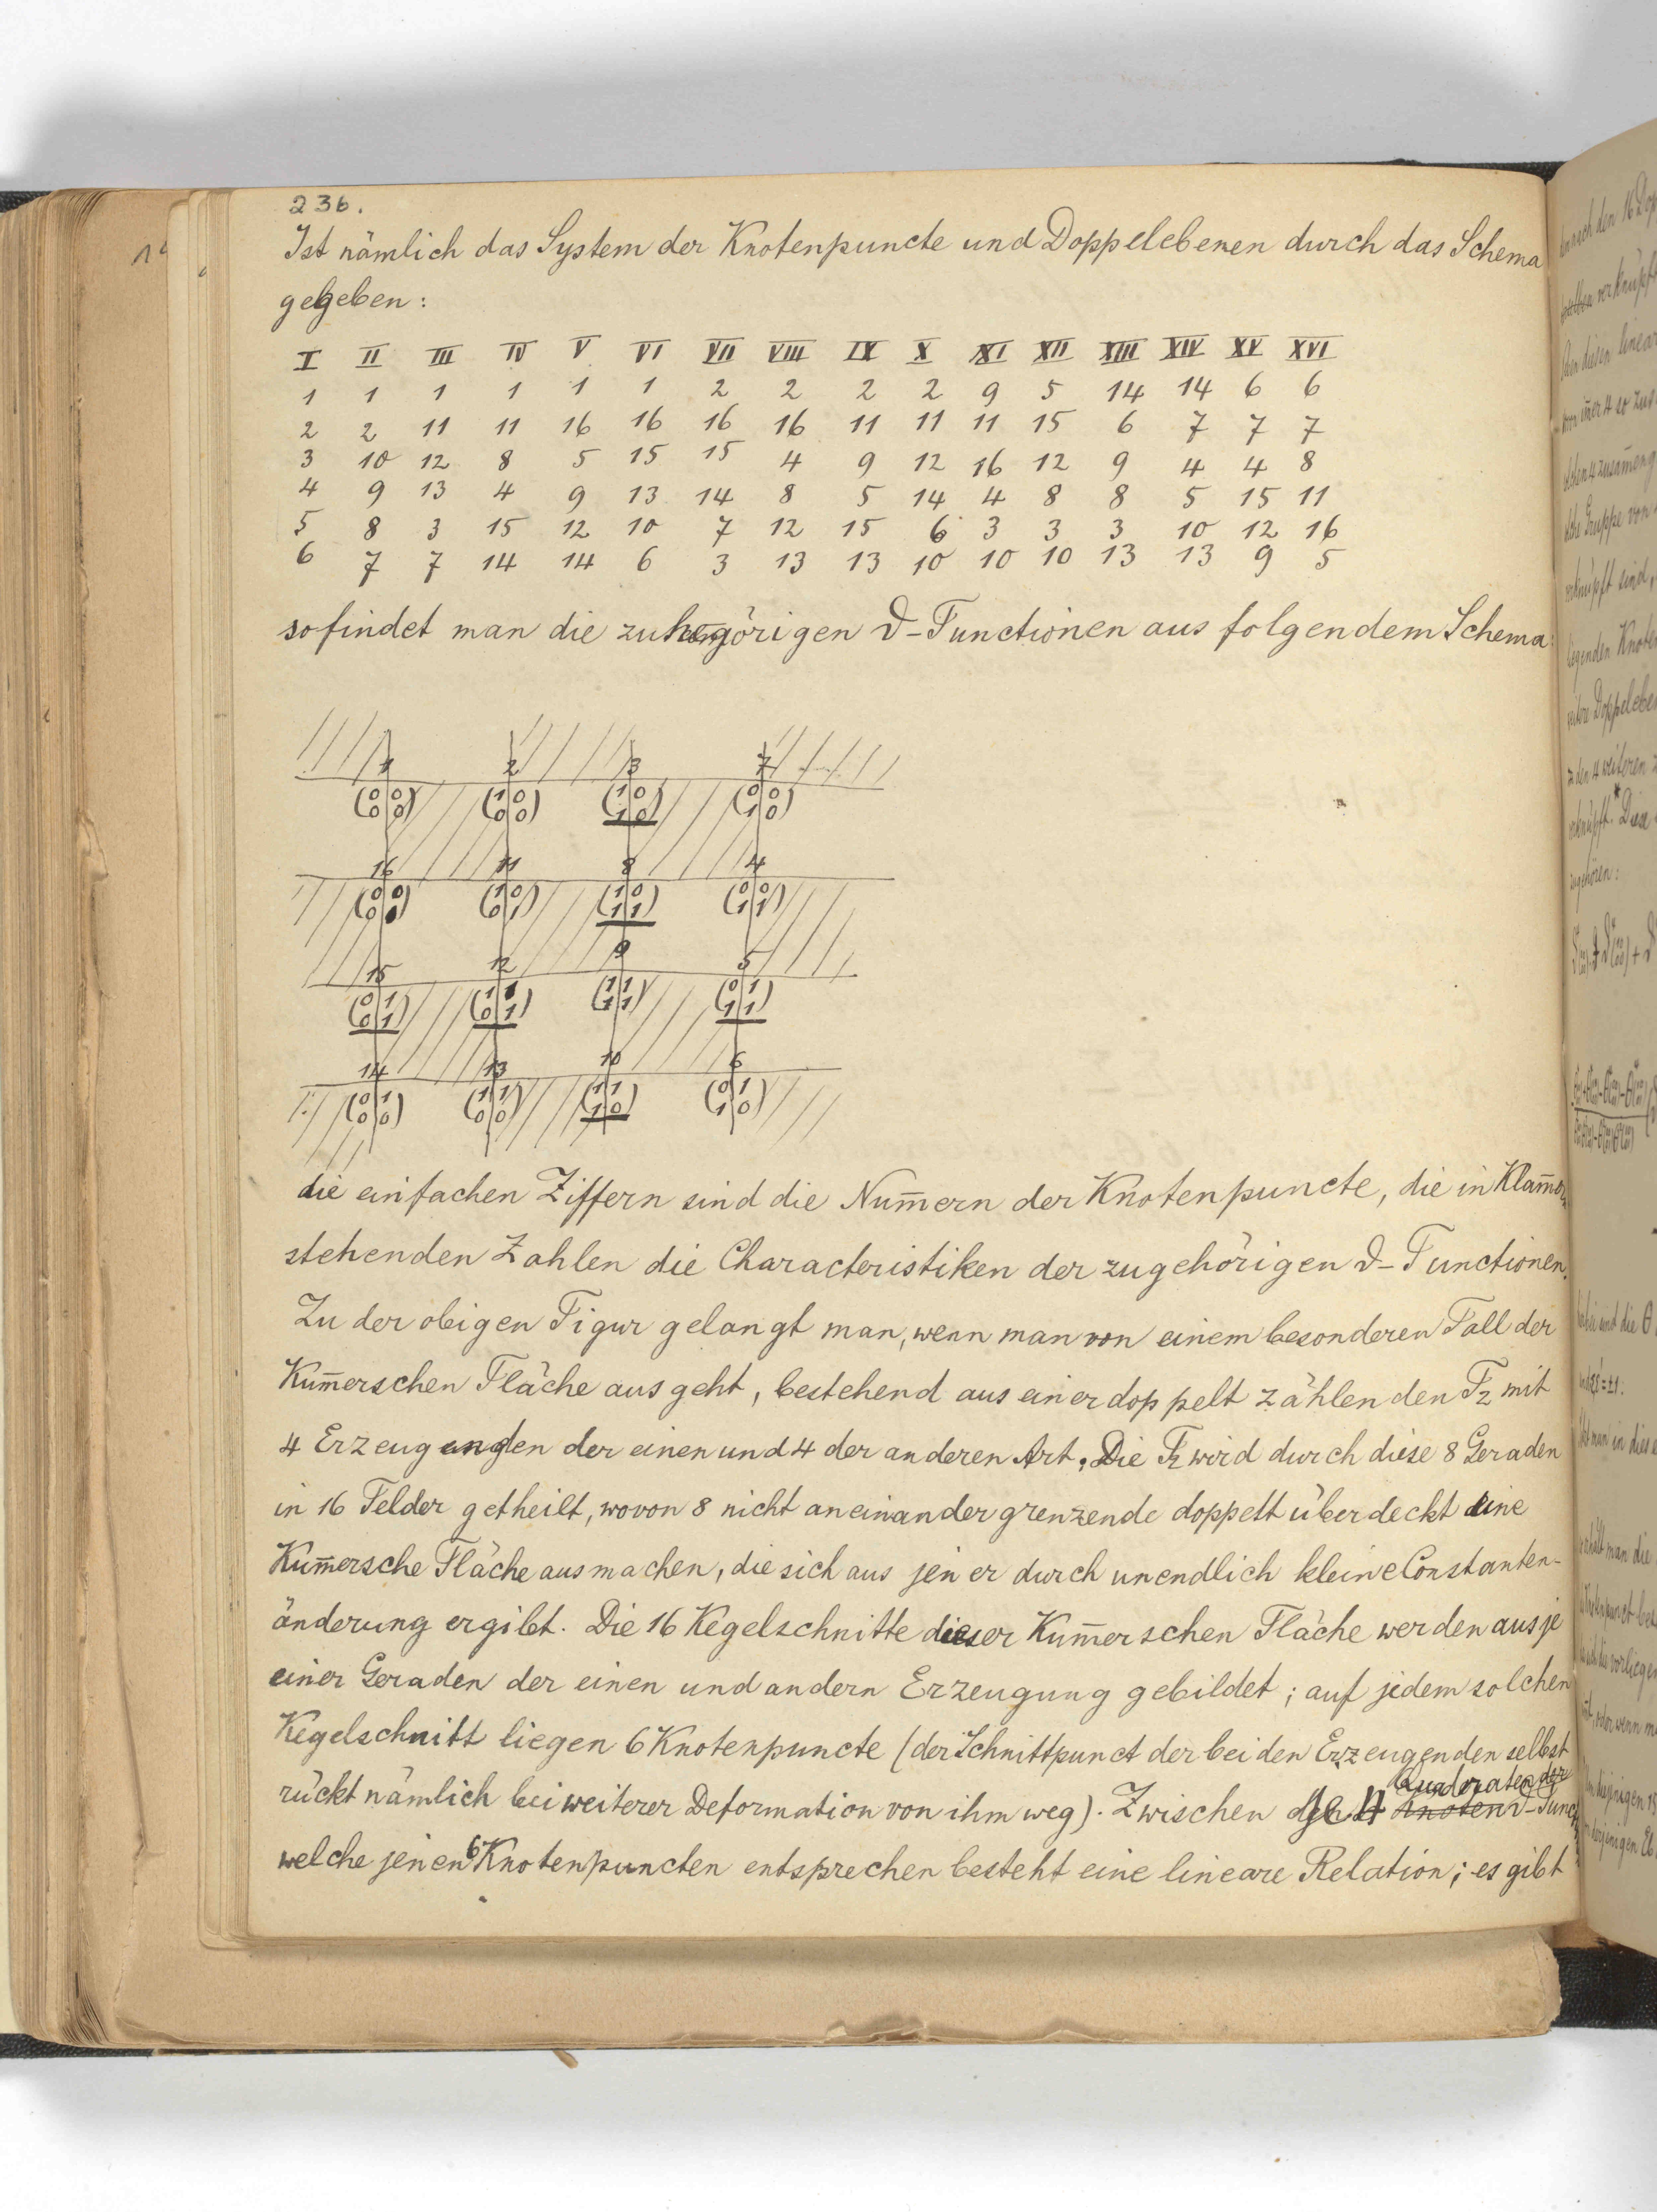 236.
Ist nämlich das System der Knotenpuncte und Doppelebenen durch das Schema
gegeben:
I II III IV V VI VII VIII IX X XI XII XIII XIV XV XVI
1 1 1 1 1 1 2 2 2 2 9 5 14 14 6 6
2 2 11 11 16 16 16 16 11 11 11 15 6 7 7 7
3 10 12 8 5 15 15 4 9 12 16 12 9 4 4 8
4 9 13 4 9 13 14 8 5 14 4 8 8 5 15 11
5 8 3 15 12 10 7 12 15 6 3 3 3 10 12 16
6 7 7 14 14 6 3 13 13 10 10 10 13 13 9 5
so findet man die zuhegörigen ϑ-Functionen aus folgendem Schema:
1 2 3 7
(0 0) (1 0) (1 0) (0 0)
(0 0) (0 0) (1 0) (1 0)
16 11 8 4
(0 0) (1 0) (1 0) (0 0)
(0 1) (0 1) (1 1) (1 1)
15 12 9 5
(0 1) (1 1) (1 1) (0 1)
(0 1) (0 1) (1 1) (1 1)
14 13 10 6
(0 1) (1 1) (1 1) (0 1)
(0 0) (0 0) (1 0) (1 0)
die einfachen Ziffern sind die Num̅ern der Knotenpuncte, die in Klam̅ern
stehenden Zahlen die Characteristiken der zugehörigen ϑ-Functionen.
Zu der obigen Figur gelangt man, wenn man von einem besonderen Fall der
Kum̅erschen Fläche ausgeht, bestehend aus einer doppelt zählenden F₂ mit
4 Erzeugenden der einen und 4 der anderen Art. Die F₂ wird durch diese 8 Geraden
in 16 Felder getheilt, wovon 8 nicht aneinandergrenzende doppelt überdeckt eine
Kum̅ersche Fläche ausmachen, die sich aus jener durch unendlich kleine Constanten-
änderung ergibt. Die 16 Kegelschnitte dieser Kum̅erschen Fläche werden aus je
einer Geraden der einen und andern Erzeugung gebildet; auf jedem solchen
Kegelschnitt liegen 6 Knotenpuncte (der Schnittpunct der beiden Erzeugenden selbst
rückt nämlich bei weiterer Deformation von ihm weg). Zwischen je 4 Quadraten der ϑ-Funct.
welche jenen 6 Knotenpuncten entsprechen besteht eine lineare Relation; es gibt